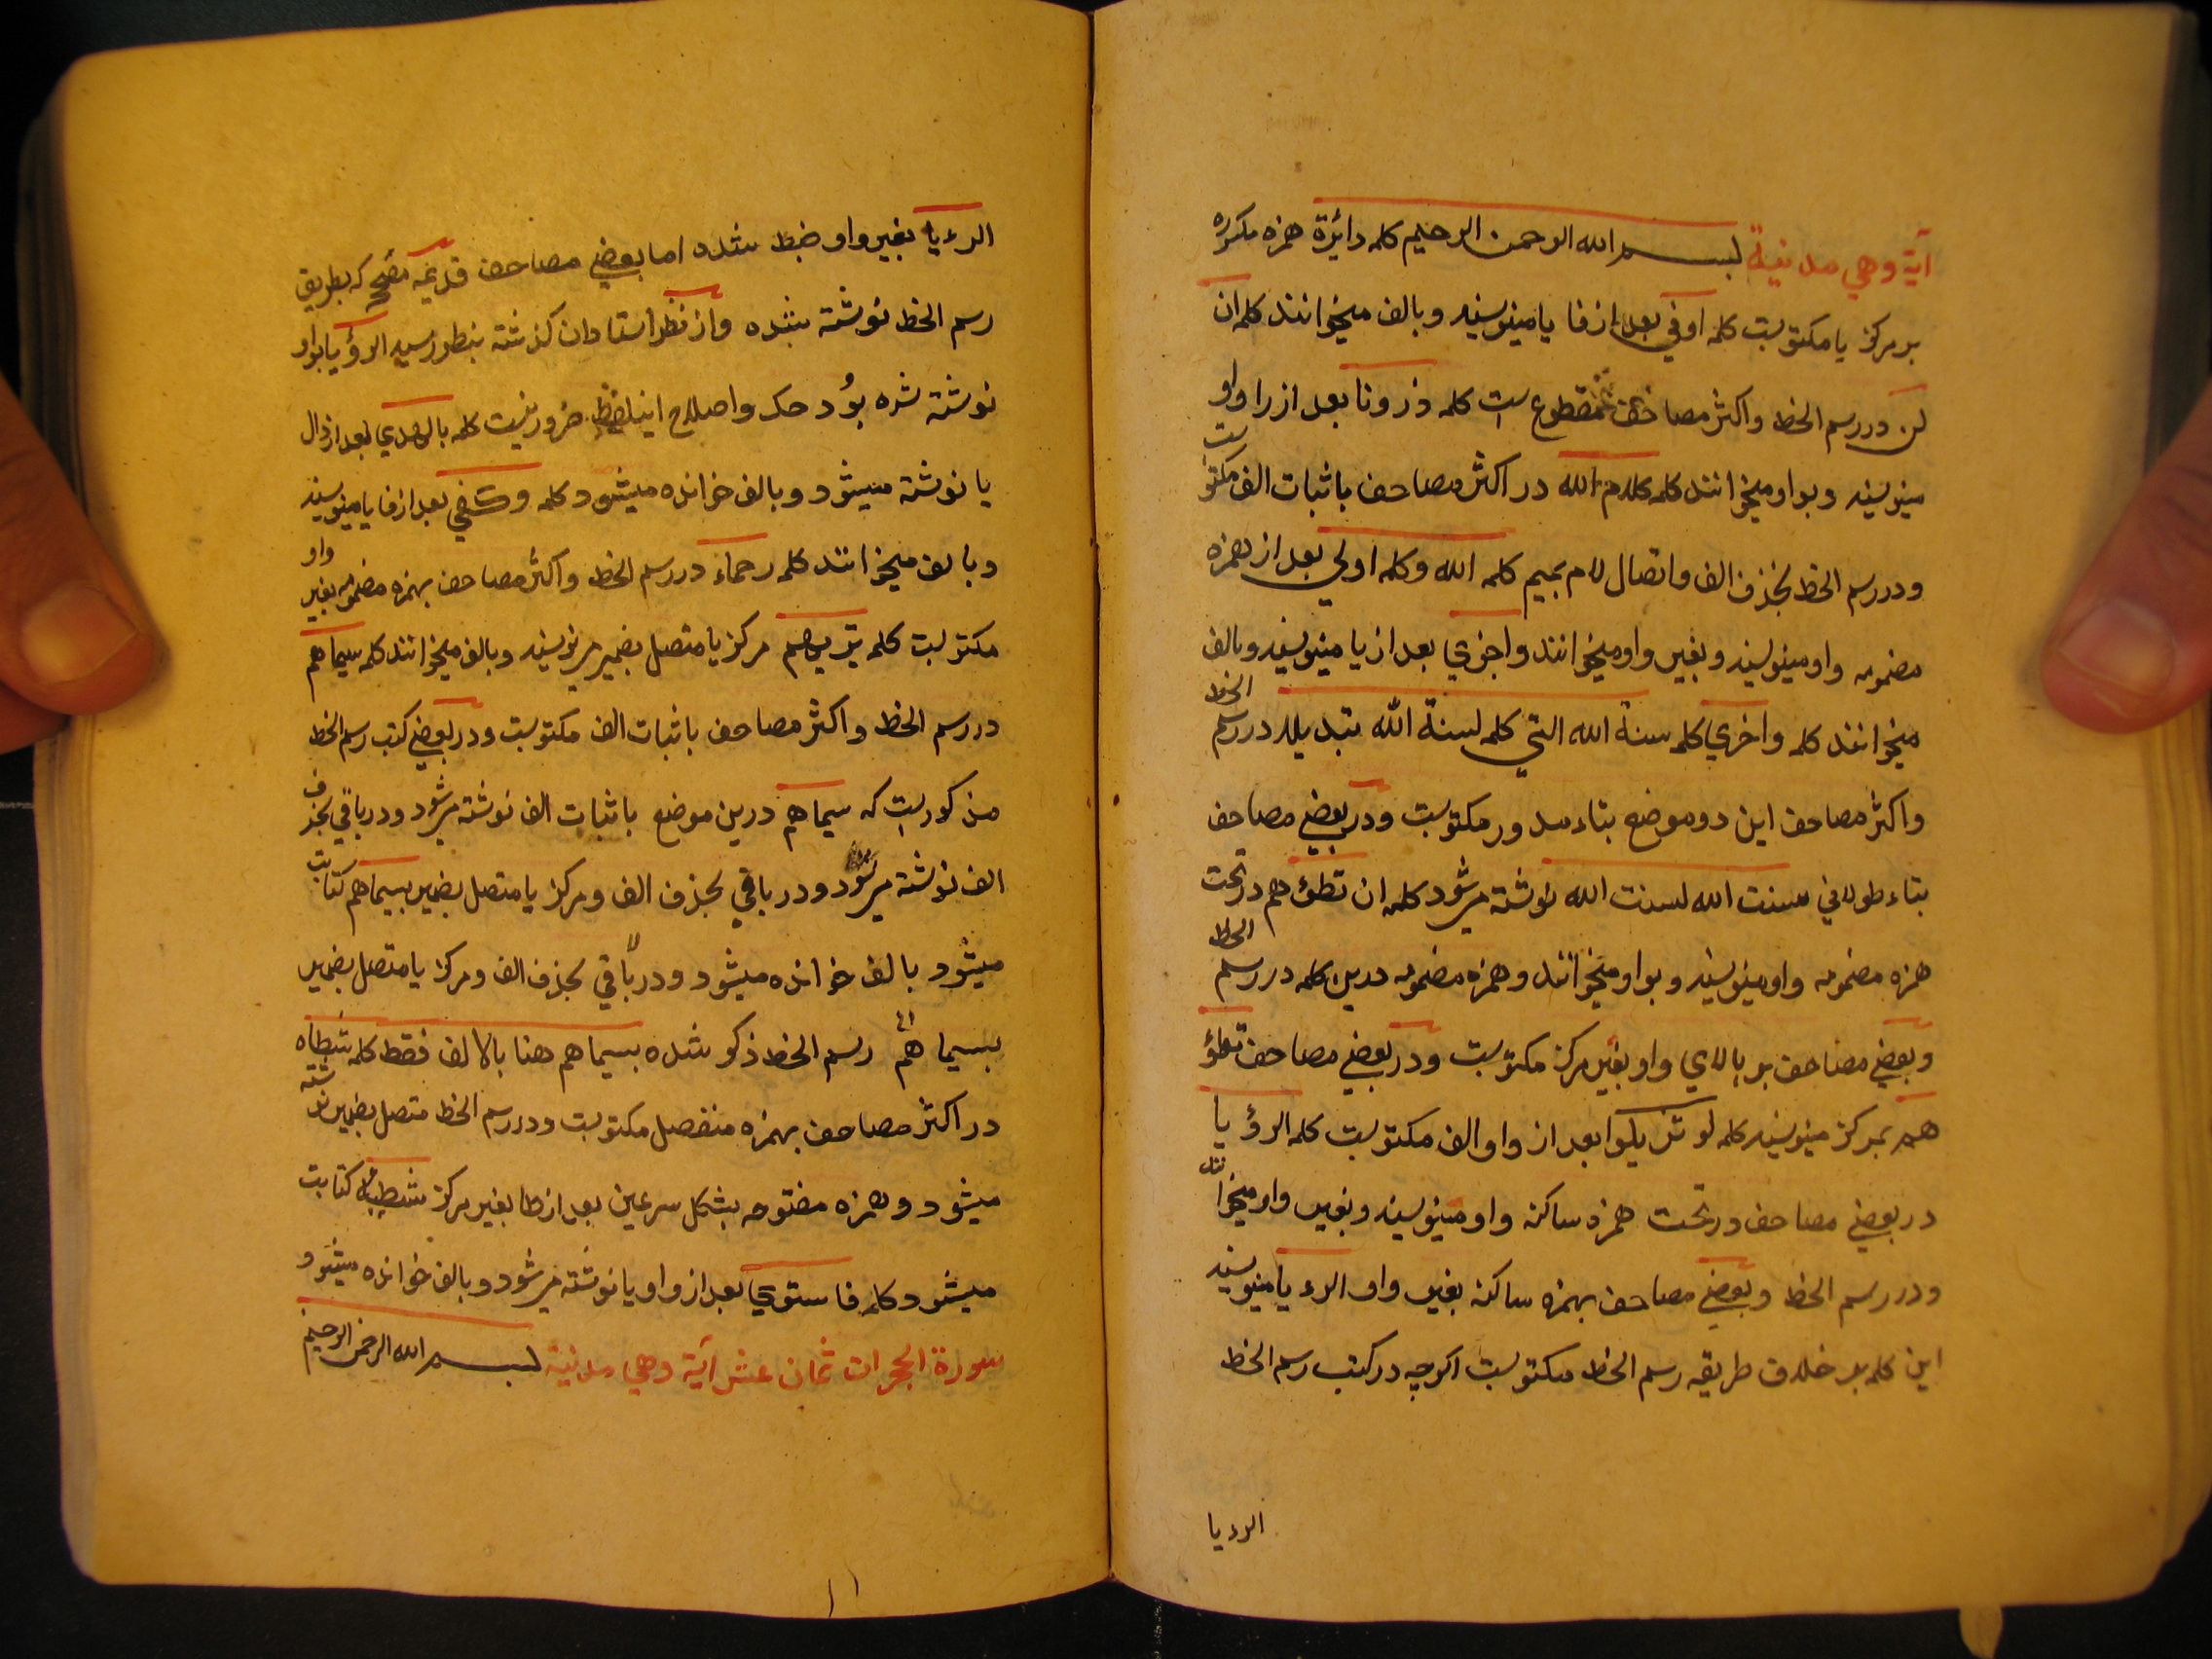 آية وهي مدنية بسم الله الرحمن الرحيم كلمه دائرة همزه مكسوره
بر مركز يا مكتوبست كلمه اوفي بعد از فا يا مينويسند وبالف ميخوانند كلمه ان
لن در رسم الخط واكثر مصاحف مقطوع است كلمه ذرونا بعد از را واو
مينويسند وبواو ميخوانند كلمه كلام الله در اكثر مصاحف باثبات الف مكتوبست
ودر رسم الخط بحذف الف واتصال لام بميم كلمه الله وكلمه اولي بعد از همزه
مضمومه واو مينويسند وبغير واو ميخوانند واخري بعد از يا مينويسند وبالف
ميخوانند كلمه واخري كلمه سنة الله التي كلمه لسنة الله تبديلا در رسم الخط
واكثر مصاحف اين دو موضع بتاء مدور مكتوبست ودر بعضي مصاحف
بتاء طولاني سنت الله لسنت الله نوشته ميشود كلمه ان تطؤهم در تحت
همزه مضمومه واو مينويسند وبواو ميخوانند وهمزه مضمومه درين كلمه در رسم الخط
وبعضي مصاحف بر بالاي واو بغير مركز مكتوبست ودر بعضي مصاحف تطؤ
هم بمركز مينويسند كلمه لو تزيلوا بعد از واو الف مكتوبست كلمه الرؤيا
در بعضي مصاحف در تحت همزه ساكنه واو مينويسند وبغير واو ميخوانند
ودر رسم الخط وبعضي مصاحف بهمزه ساكنه بغير واو الرءيا مينويسند
اين كلمه بر خلاف طريقه رسم الخط مكتوبست اكرچه در كتب رسم الخط
الرءيا
الرءيا بغير واو ضبط شده اما بعضي مصاحف قديمه مصحح كه بطريق
رسم الخط نوشته شده واز نظر استادان كذشته بنظر رسيد الرؤيا بواو
نوشته شده بود حك واصلاح اينلفظ ضرور نيست كلمه بالهدي بعد از دال
يا نوشته ميشود وبالف خوانده ميشود كلمه وكفي بعد از فا يا مينويسند
وبالف ميخوانند كلمه رحماء در رسم الخط واكثر مصاحف بهمزه مضمومه بغير واو
مكتوبست كلمه تريهم مركز يا متصل بضمير مينويسند وبالف ميخوانند كلمه سيماهم
در رسم الخط واكثر مصاحف باثبات الف مكتوبست ودر بعضي كتب رسم الخط
مذكورست كه سيماهم درين موضع باثبات الف نوشته ميشود ودر باقي بحذف
الف نوشته ميشود ودر باقي بحذف الف ومركز يا متصل بضمير بسيماهم كتابت
ميشود بالف خوانده ميشود ودر باقي بحذف الف ومركز يا متصل بضمير
بسيماهم رسم الخط ذكو شده بسيماهم هنا بالالف فقط كلمه شطأه
در اكثر مصاحف بهمزه منفصل مكتوبست ودر رسم الخط متصل بضمير نوشته
ميشود وهمزه مفتوحه بشكل سرعين بعد از طا بغير مركز شطئه كتابت
ميشود كلمه فاستوي بعد از واو يا نوشته ميشود وبالف خوانده ميشود
سورة الحجرات ثمان عشر آية وهي مدنية بسم الله الرحمن الرحيم